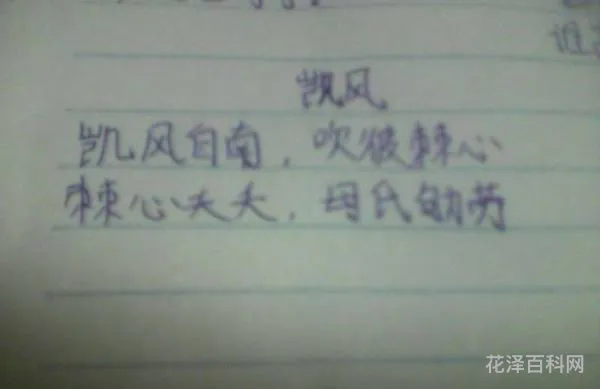 凯风
凯风自南，吹彼棘心
棘心夭夭，母氏劬劳
花泽百科网